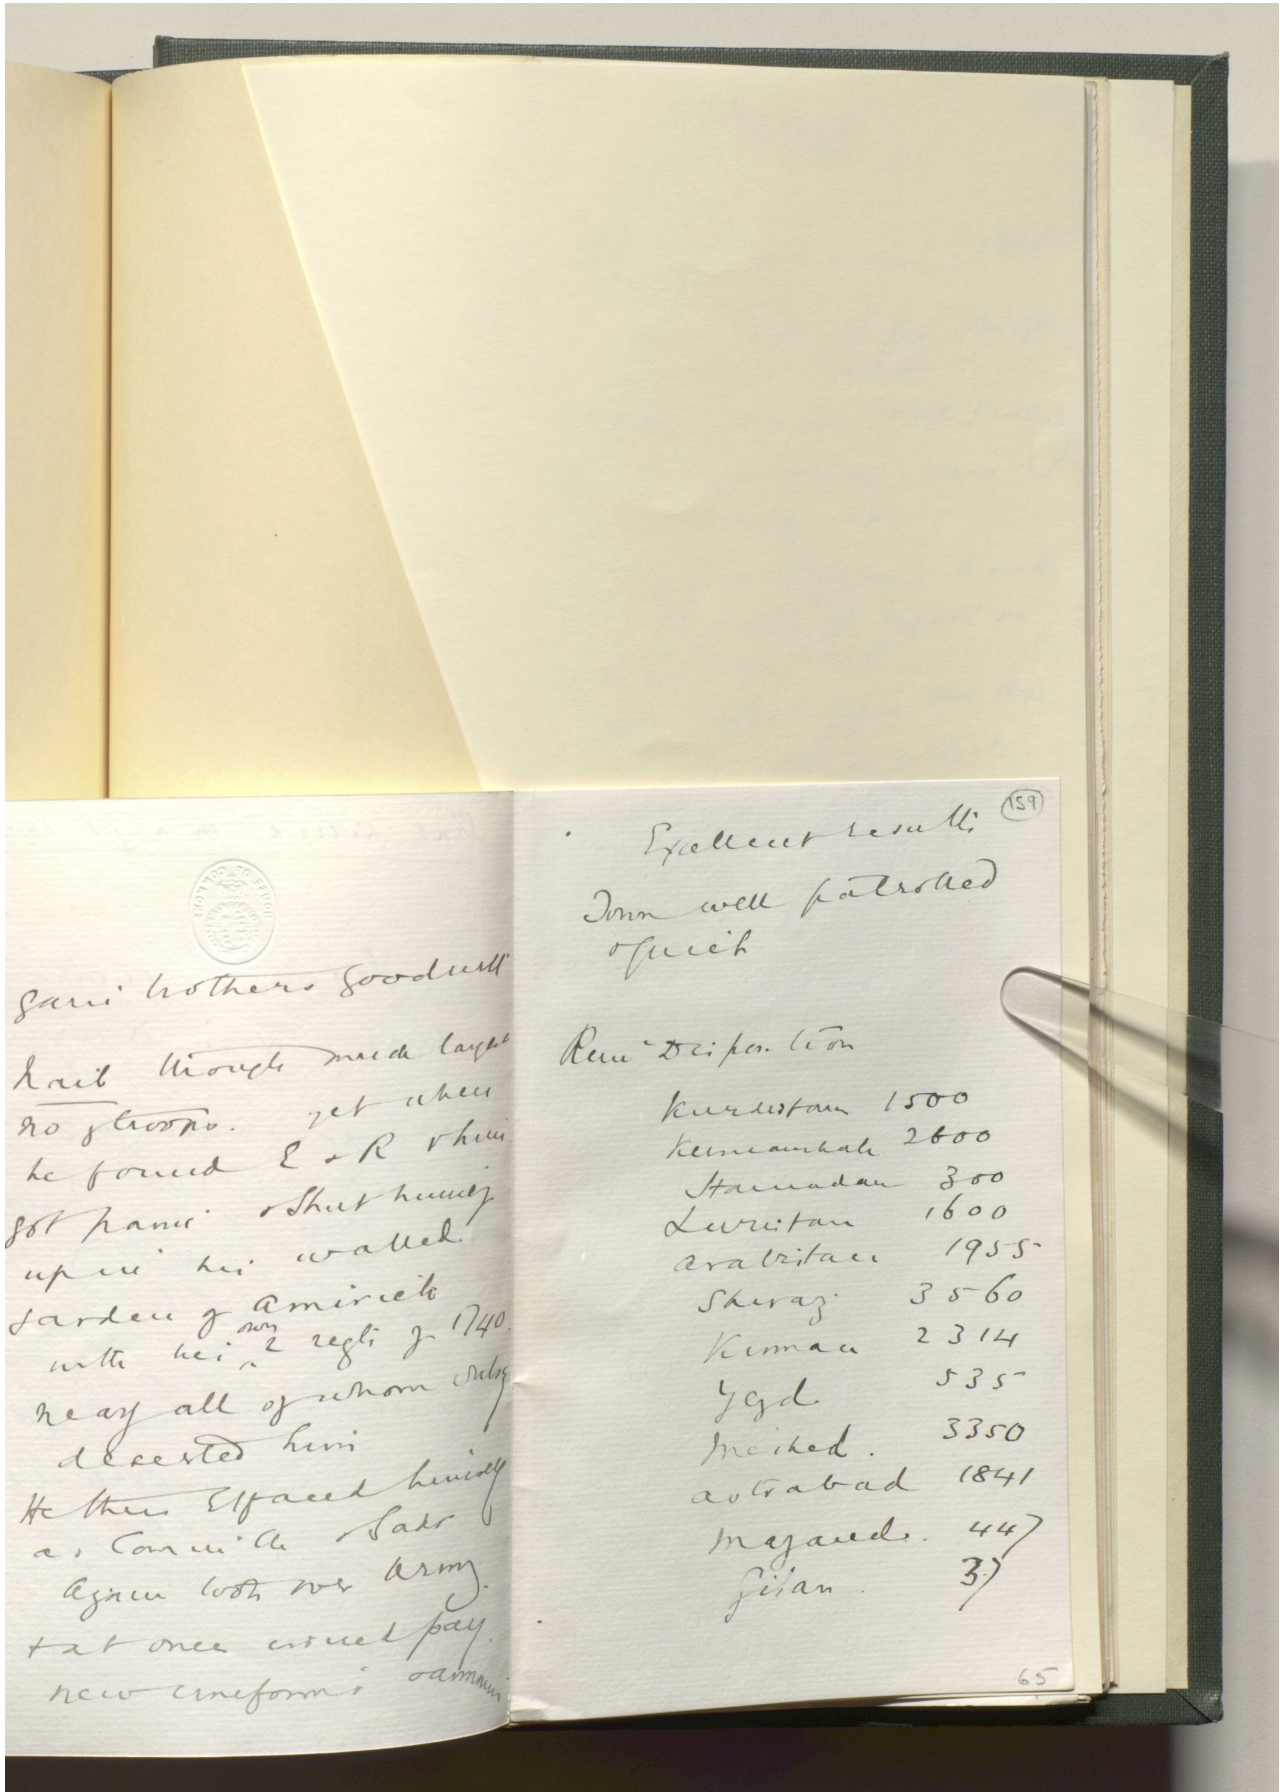 HOUSE OF COMMONS
gain brothers goodwill
Naib though much larger
no of troops. yet when
he found E & R & him
got panic & shut himself
up in his walled
garden of Amirieh
with his own 2 regts of 1740.
nearly all of whom
deserted him
He then Effaced himself
as Com in Ch & Sadr
Again took over Army.
& at once issued pay.
new uniforms
159
Excellent results
Town well patrolled
& quiet
Disposition
Kurdistan 1500
Kermanshah 2600
Hamadan 300
Luristan 1600
Arabistan 1955
Shiraz 3560
Kirman 2314
Yezd 535
Meshed. 3350
Astrabad 1841
Mazand. 447
Gilan. 37
65